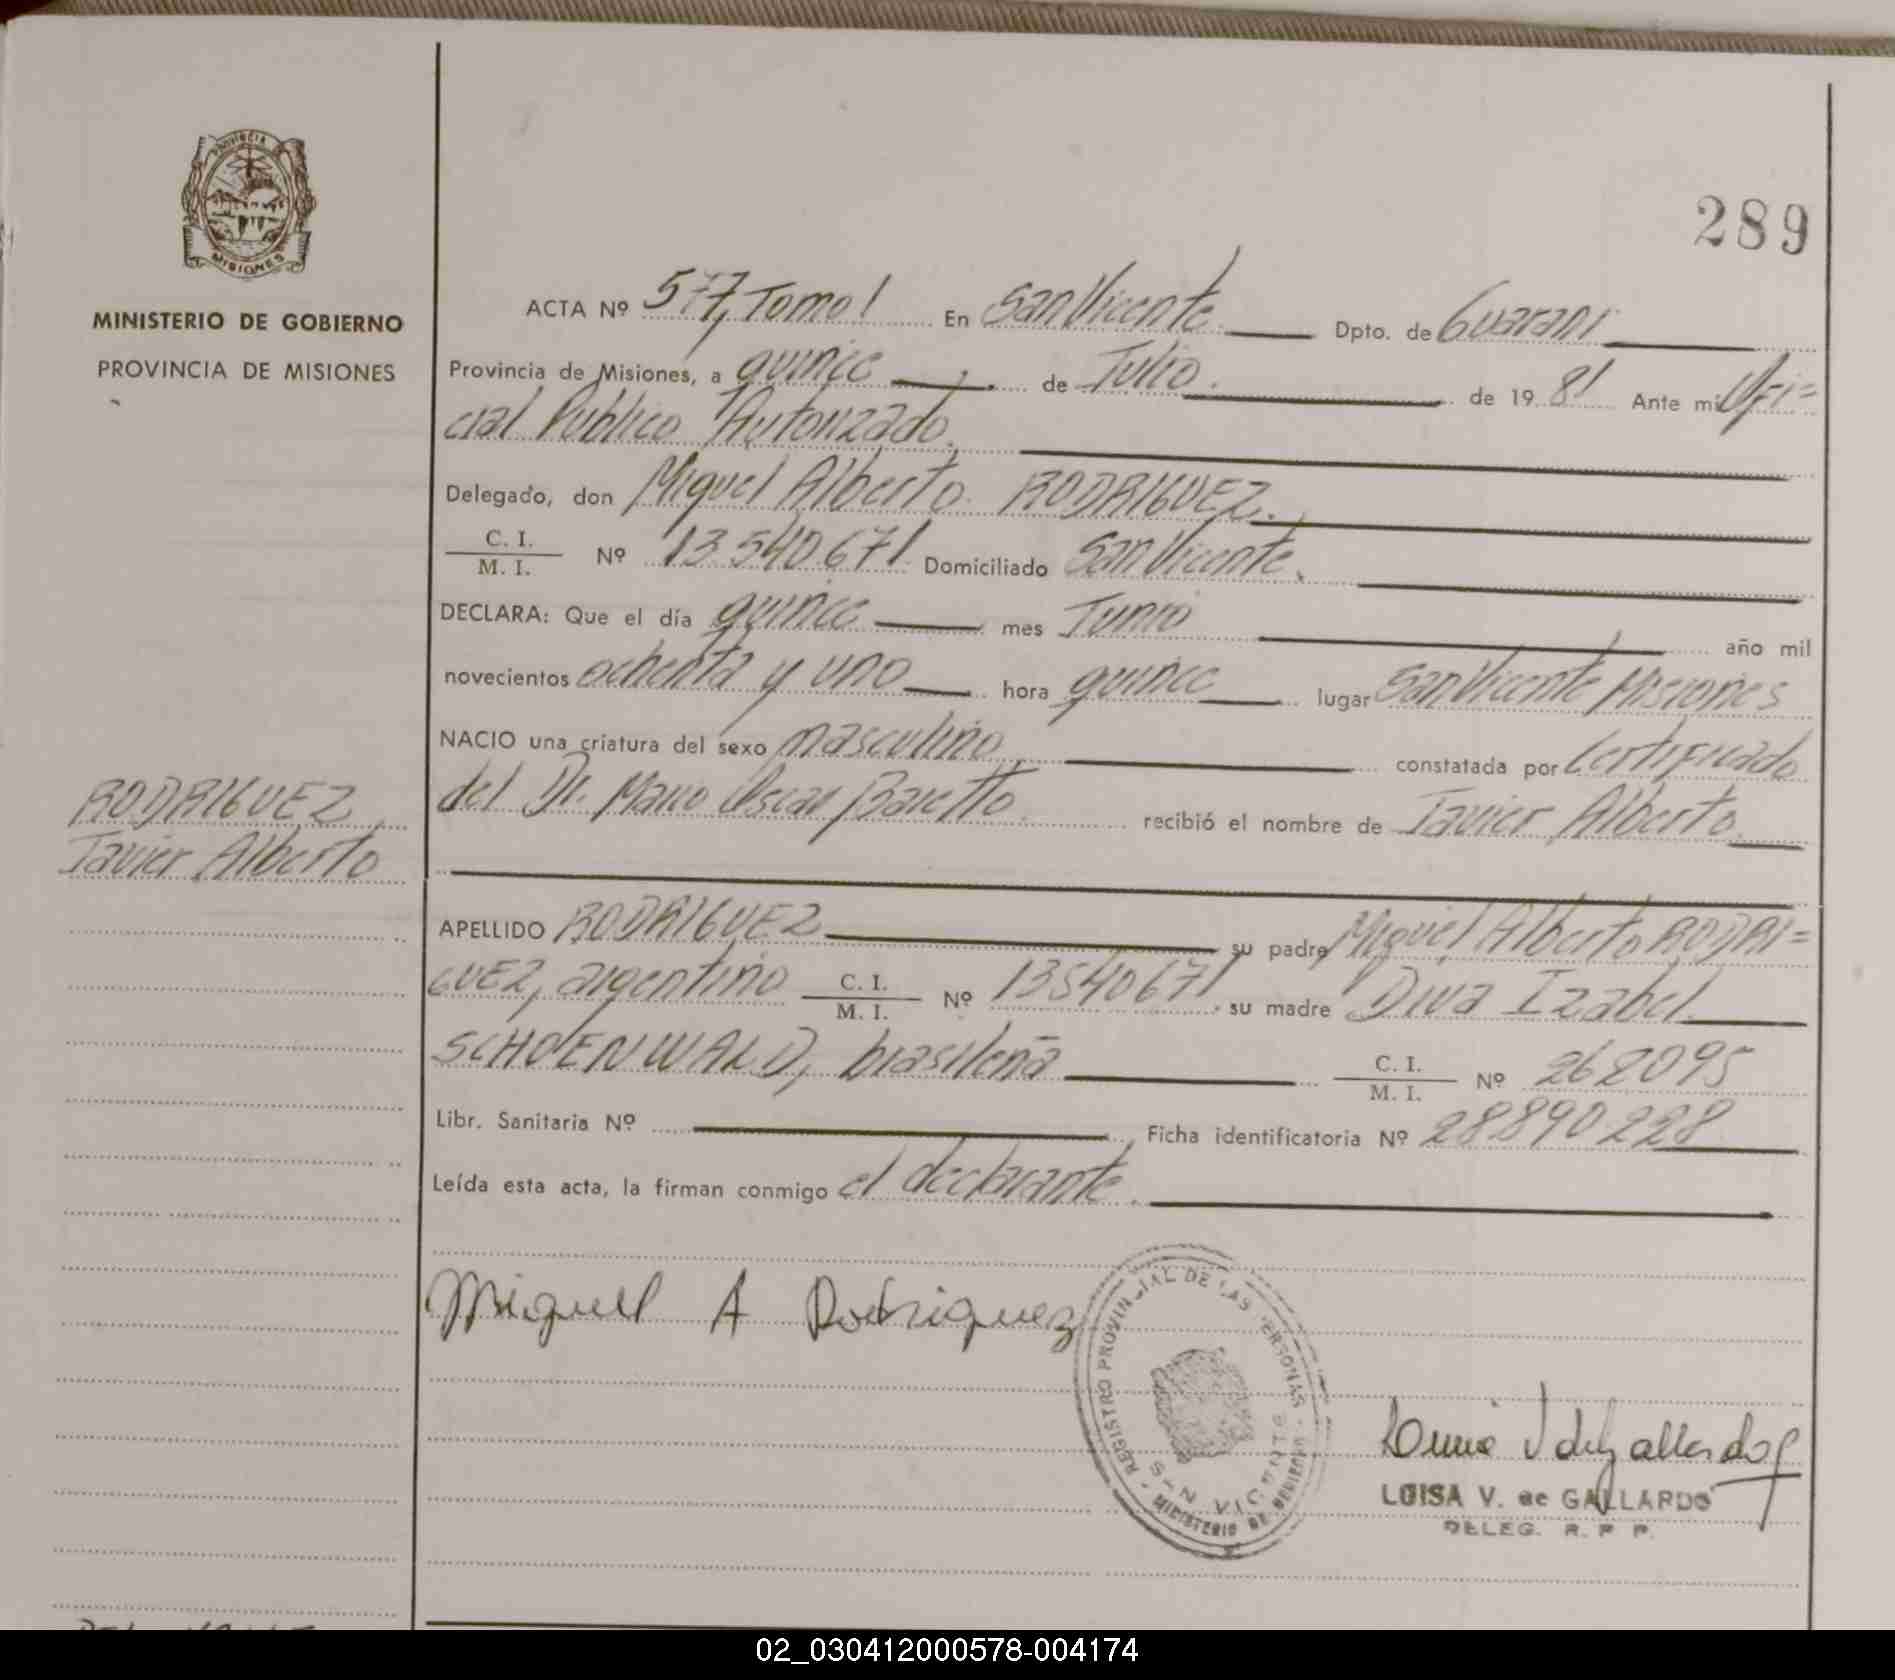 289
PROVINCIA DE
MISIONES
MINISTERIO DE GOBIERNO
PROVINCIA DE MISIONES
ACTA Nº 577, Tomo I En San Vicente Dpto. de Guaraní
Provincia de Misiones, a quince de Julio. de 19 81 Ante mi Ofi=
cial Publico Autorizado.
Delegado, don Miguel Alberto RODRIGUEZ.
C. I.
M. I. Nº 13.540.671 Domiciliado San Vicente.
DECLARA: Que el día quince mes Junio año mil
novecientos ochenta y uno hora quince lugar San Vicente Misiones
NACIO una criatura del sexo masculino constatada por Certificado
del Dr. Mario Oscar Baretto recibió el nombre de Javier Alberto
RODRIGUEZ
Javier Alberto
APELLIDO RODRIGUEZ su padre Miguel Alberto RODRI=
GUEZ, argentino C. I.
M. I. Nº 13540671 su madre Diva Izabel
SCHOENWALD, brasileña C. I.
M. I. Nº 262095
Libr. Sanitaria Nº Ficha identificatoria Nº 28890228
Leída esta acta, la firman conmigo el declarante.
Miguel A Rodriguez
REGISTRO PROVINCIAL DE LAS PERSONAS
SAN VICENTE
MINISTERIO DE GOBIERNO
LUISA V. de GALLARDO
DELEG. R. P. P.
02_030412000578-004174